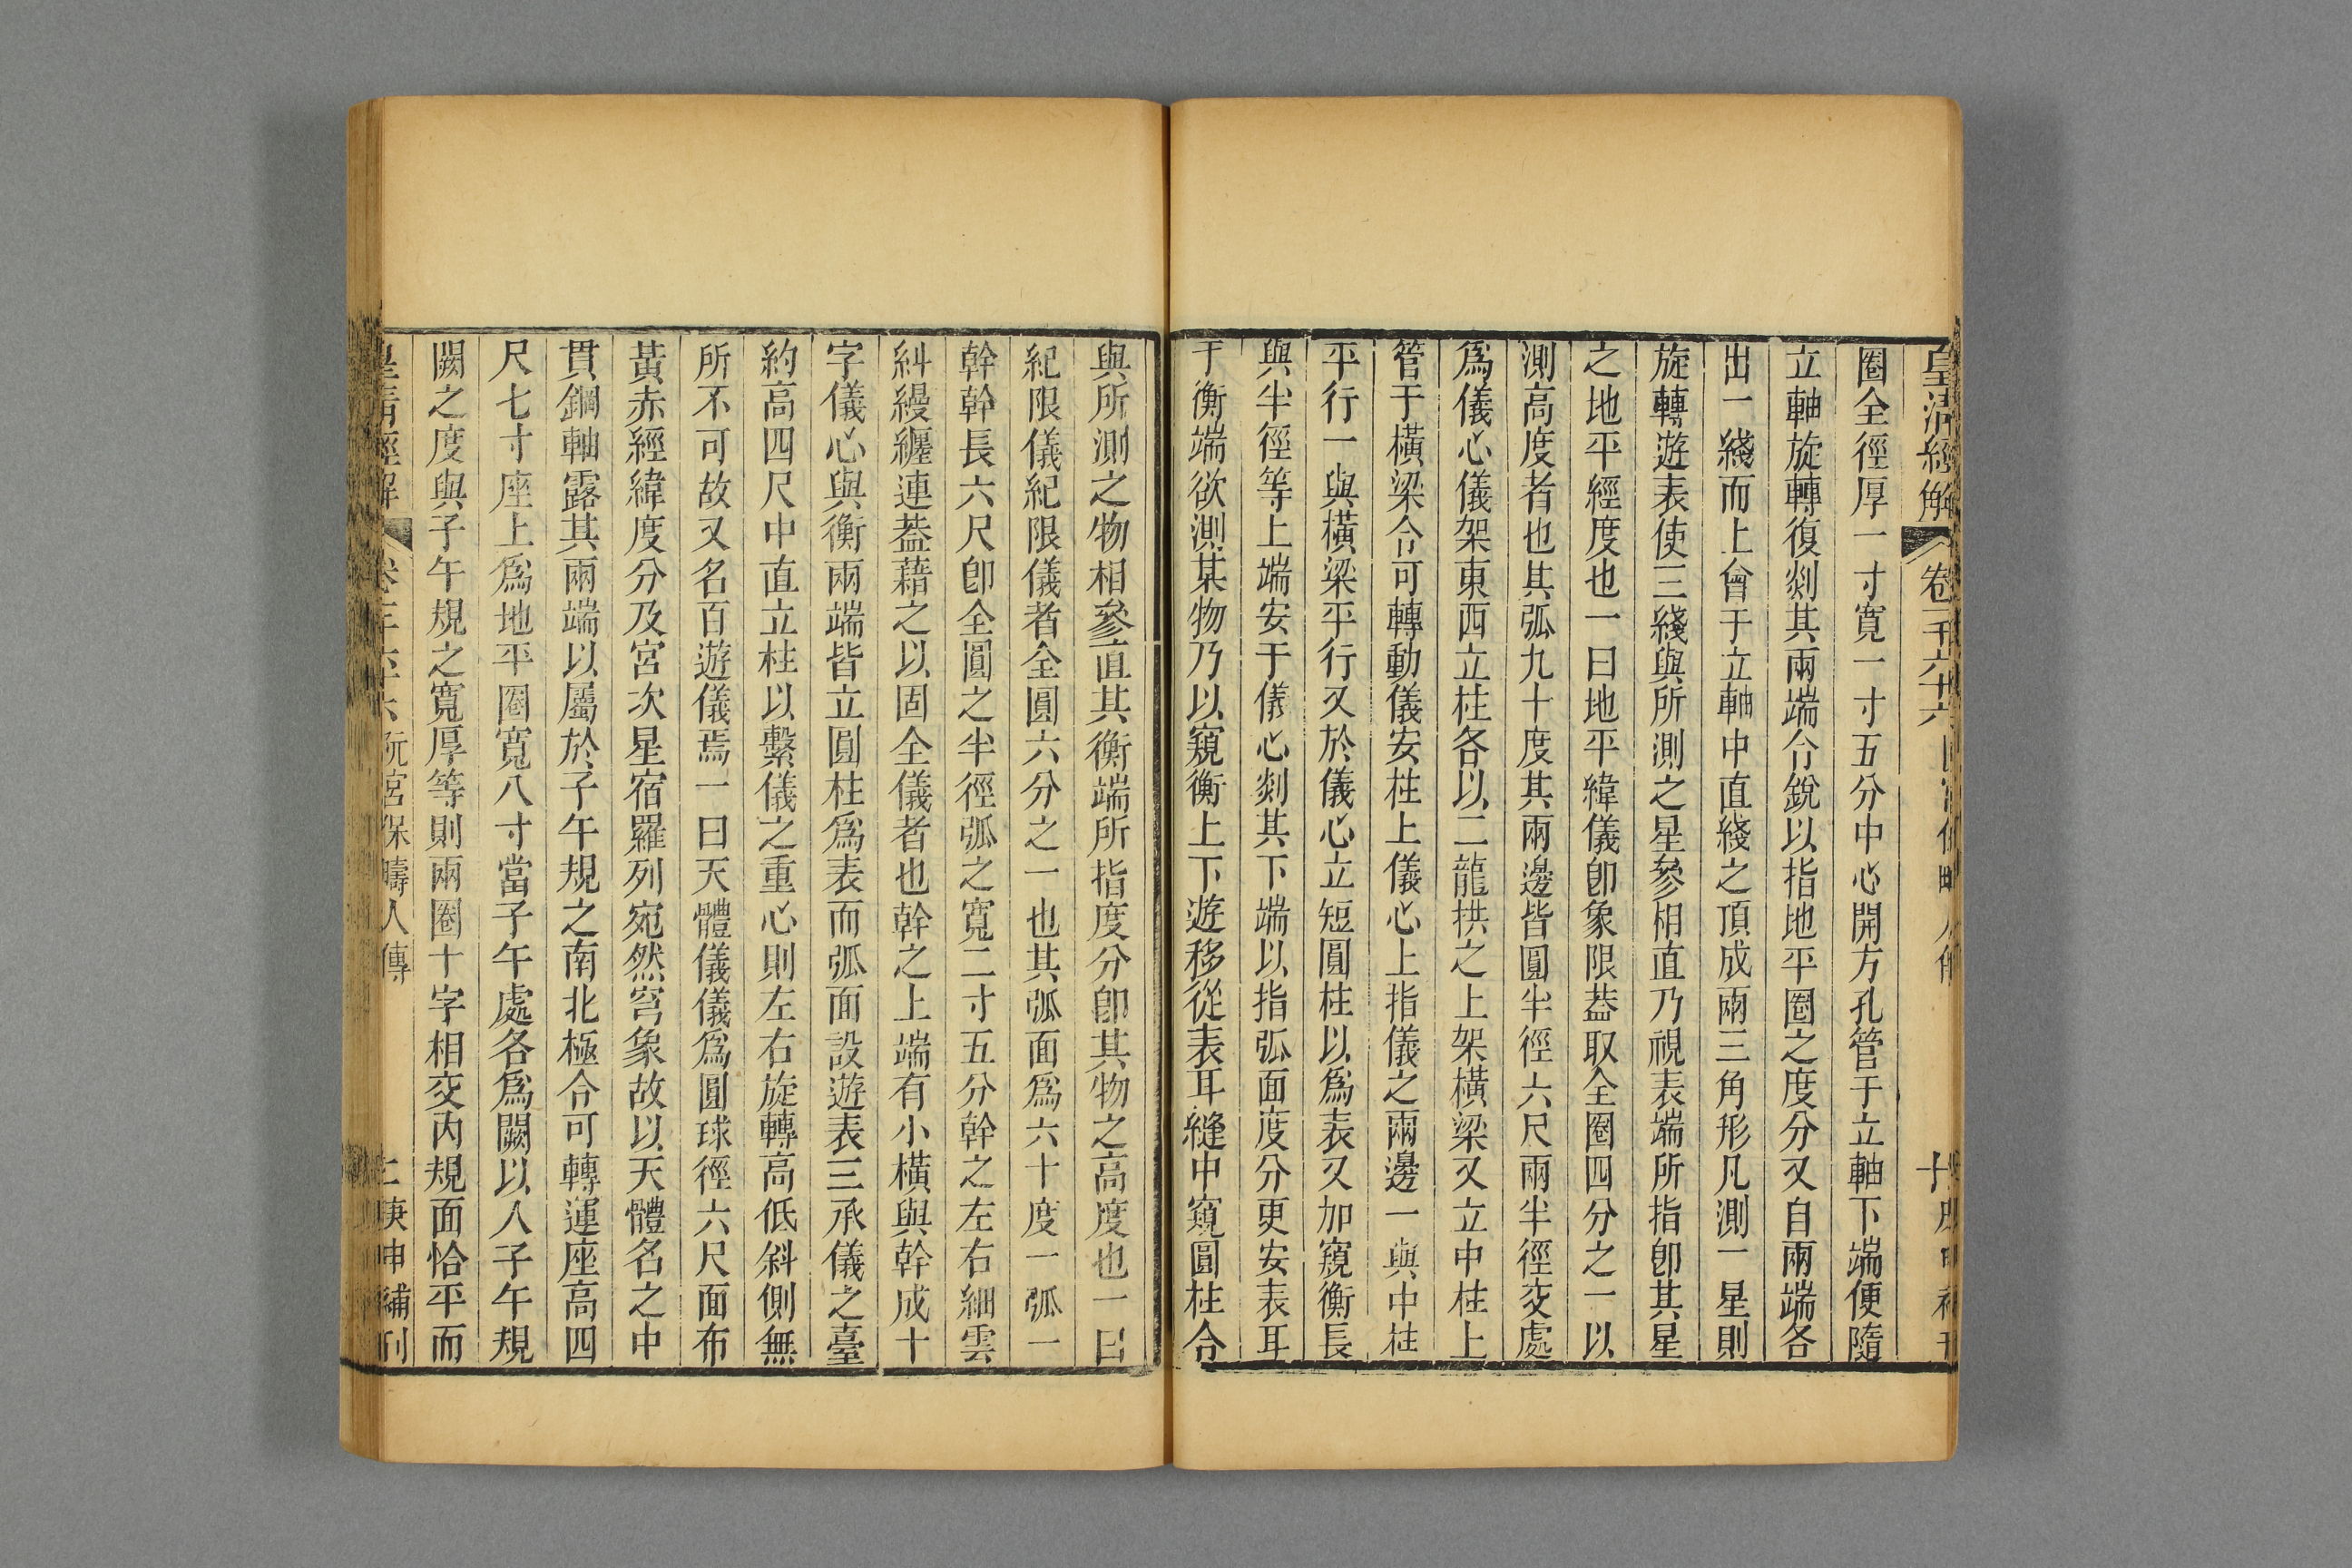 皇清經解 卷一千六十六
圈全徑厚一寸寬一寸五分中心開方孔管于立軸下端便隨
立軸旋轉復剡其兩端令銳以指地平圈之度分又自兩端各
出一綫而上會于立軸中直綫之頂成兩三角形凡測一星則
旋轉遊表使三綫與所測之星參相直乃視表端所指卽其星
之地平經度也一曰地平緯儀卽象限葢取全圈四分之一以
測高度者也其弧九十度其兩邊皆圓半徑六尺兩半徑交處
爲儀心儀架東西立柱各以二龍拱之上架橫梁又立中柱上
管于橫梁令可轉動儀安柱上儀心上指儀之兩邊一與中柱
平行一與橫梁平行又於儀心立短圓柱以爲表又加窺衡長
與半徑等上端安于儀心剡其下端以指弧面度分更安表耳
于衡端欲測某物乃以窺衡上下遊移從表耳縫中窺圓柱合
與所測之物相參直其衡端所指度分卽其物之高度也一曰
紀限儀紀限儀者全圓六分之一也其弧面爲六十度一弧一
幹幹長六尺卽全圓之半徑弧之寬二寸五分幹之左右細雲
糾縵纏連葢藉之以固全儀者也幹之上端有小橫與幹成十
字儀心與衡兩端皆立圓柱爲表而弧面設遊表三承儀之臺
約高四尺中直立柱以繫儀之重心則左右旋轉高低斜側無
所不可故又名百遊儀焉一曰天體儀儀爲圓球徑六尺面布
黃赤經緯度分及宮次星宿羅列宛然穹象故以天體名之中
貫鋼軸露其兩端以屬於子午規之南北極令可轉運座高四
尺七寸座上爲地平圈寬八寸當子午處各爲闕以入子午規
闕之度與子午規之寬厚等則兩圈十字相交內規面恰平而
皇淸經解 阮宮保疇人傳 庚申補刊